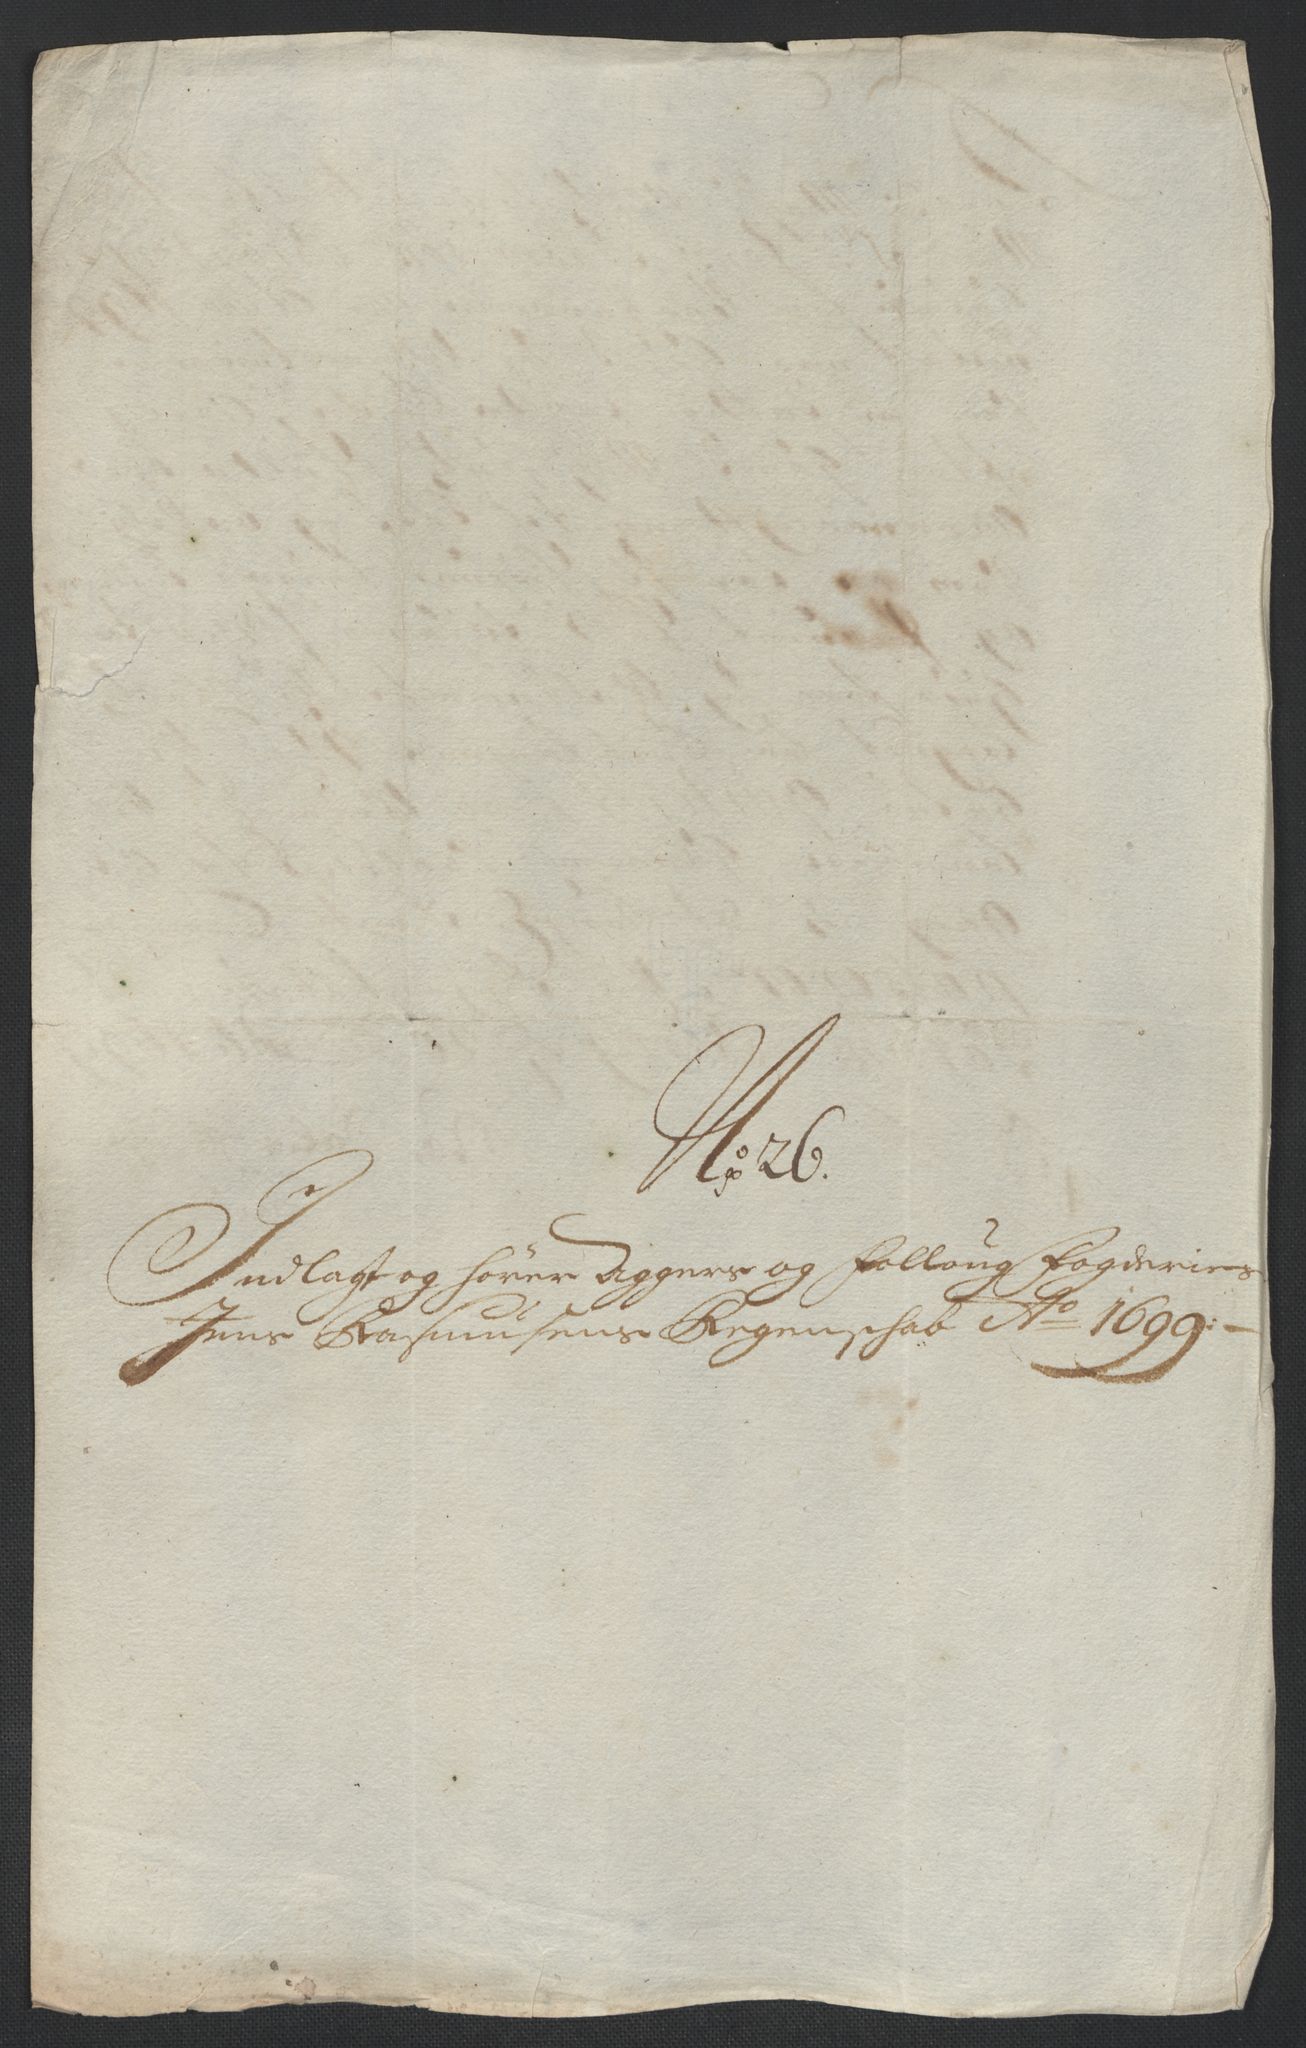 No: 26.
Indlagt og hörer Aggers og Follöug fogderies
Jens Rasmusens Regenschab Ao 1699: